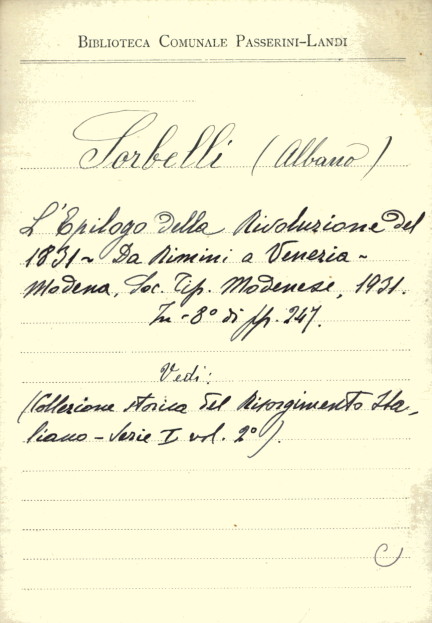 BIBLIOTECA COMUNALE PASSERINI-LANDI
Sorbelli (Albano)
L'Epilogo della Rivoluzione del
1831 - Da Rimini a Venezia -
Modena, Soc. Tip. Modenese, 1931.
In-8° di pp. 247.
Vedi:
(Collezione storica del Risorgimento Ita-
liano - Serie I vol. 2°).
C